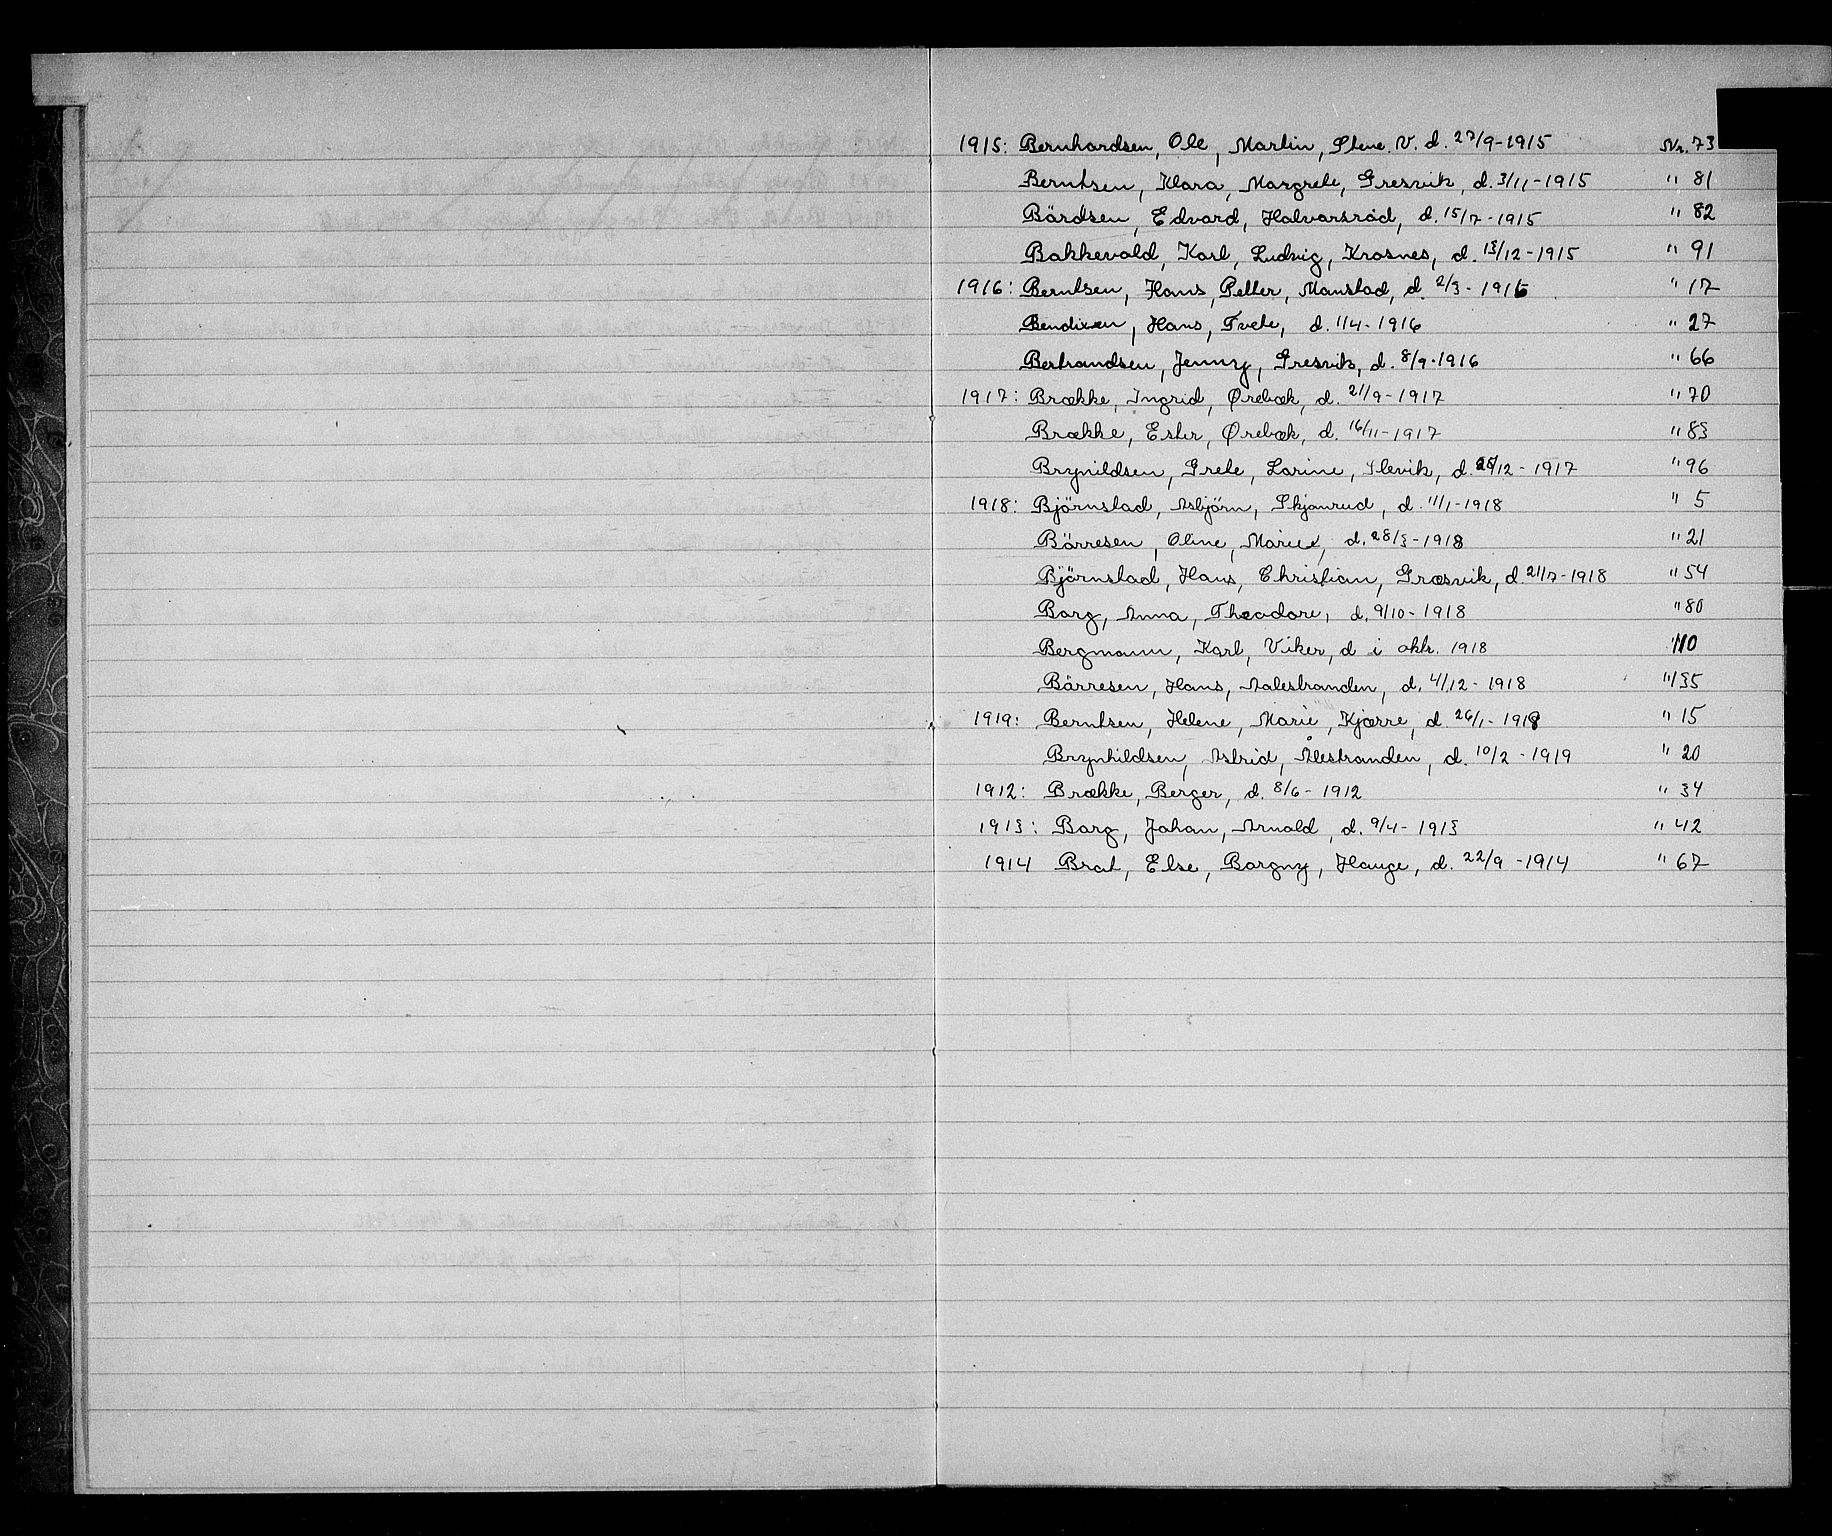 1915: Bernhardsen, Ole, Martin, Stene. V. d. 27/9-1915 Nr. 73
Berntsen, Klara, Margrete, Gresvik, d. 3/11-1915 " 81
Bårdsen, Edvard, Halvorsröd, d. 15/7-1915 " 82
Bakkevold, Karl, Ludvig, Krosnes, d. 13/12-1915 " 91
1916: Berntsen, Hans, Petter, Manstad, d. 2/3-1916 " 17
Bendixen, Hans, Tvete, d. 1/4-1916 " 27
Bertrandsen, Jenny, Gresvik, d. 8/9-1916 " 66
1917: Brække, Ingrid, Ørebæk, d. 21/9-1917 " 70
Brække, Ester, Ørebæk, d. 16/11-1917 " 83
Brynildsen, Grete, Larine, Slevik, d. /12-1917 " 96
1918: Björnstad, Asbjörn, Skjanrud, d. 11/1-1918 " 5
Börresen, Oline, Marie, d. 28/3-1918 " 21
Björnstad, Hans, Christian, Græsvik, d. 21/7-1918 " 54
Borg, Anna, Theodore, d. 9/10-1918 " 80
Bergmann, Karl, Viker, d i oktr. 1918 110
Börresen, Hans, Aalestranden, d. 4/12-1918 " 135
1919: Berntsen, Helene, Marie, Kjærre, d. 26/1-1919 " 15
Brynhildsen, Astrid, Ålestranden, d. 10/2-1919 " 20
1912: Brække, Berger, d. 8/6-1912 " 34
1913: Borg, Johan, Arnold, d. 9/4-1913 " 42
1914 Brat, Else, Borgny, Hauge, d. 22/9-1914 " 67